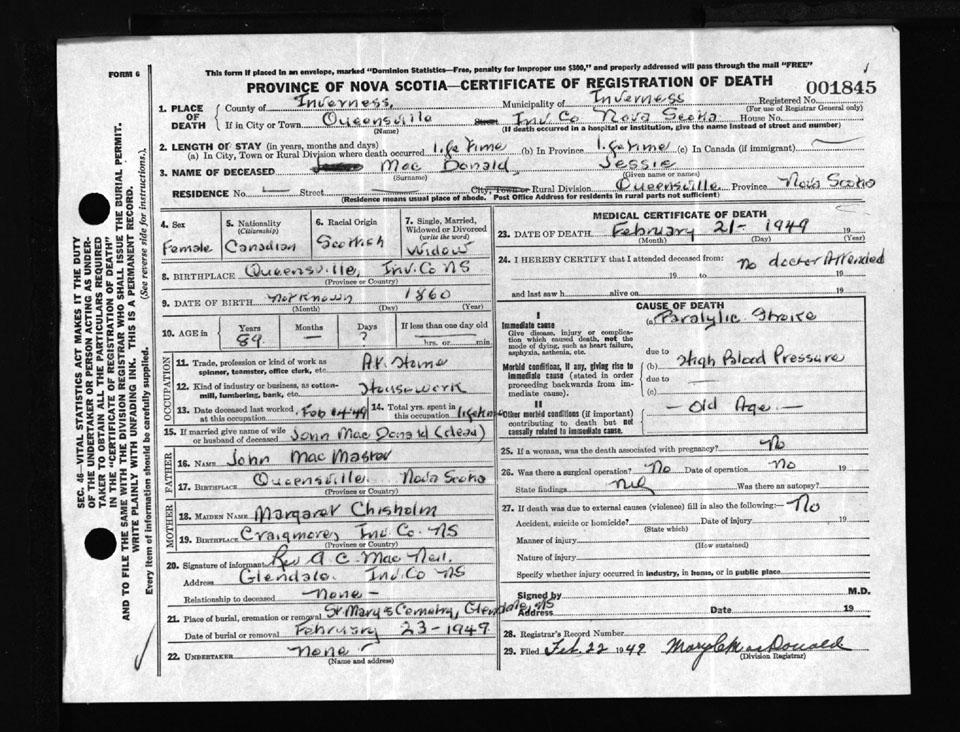 FORM 6
This form if placed in an envelope, marked "Dominion Statistics—Free, penalty for improper use $300," and properly addressed will pass through the mail "FREE"
PROVINCE OF NOVA SCOTIA—CERTIFICATE OF REGISTRATION OF DEATH 001845
1. PLACE OF DEATH County of Inverness, Municipality of Inverness Registered No.
(For use of Registrar General only)
If in City or Town Queensville Street Inv. Co Nova Scotia House No.
(Name) (If death occurred in a hospital or institution, give the name instead of street and number)
2. LENGTH OF STAY (in years, months and days)
(a) In City, Town or Rural Division where death occurred life time (b) In Province life time (c) In Canada (if immigrant)
3. NAME OF DECEASED Mac Donald, Jessie
(Surname) (Given name or names)
RESIDENCE No. Street City, Town or Rural Division Queensville Province Nova Scotia
(Residence means usual place of abode. Post Office Address for residents in rural parts not sufficient)
SEC. 46—VITAL STATISTICS ACT MAKES IT THE DUTY
OF THE UNDERTAKER OR PERSON ACTING AS UNDER-
TAKER TO OBTAIN ALL THE PARTICULARS REQUIRED
IN THE "CERTIFICATE OF REGISTRATION OF DEATH"
AND TO FILE THE SAME WITH THE DIVISION REGISTRAR WHO SHALL ISSUE THE BURIAL PERMIT.
WRITE PLAINLY WITH UNFADING INK. THIS IS A PERMANENT RECORD.
Every item of information should be carefully supplied. (See reverse side for instructions.)
4. Sex Female
5. Nationality (Citizenship) Canadian
6. Racial Origin Scottish
7. Single, Married, Widowed or Divorced (write the word) Widow
8. BIRTHPLACE Queensville, Inv. Co NS
(Province or Country)
9. DATE OF BIRTH not known 1860
(Month) (Day) (Year)
10. AGE in Years 89 Months — Days ? If less than one day old hrs. or min.
OCCUPATION
11. Trade, profession or kind of work as spinner, teamster, office clerk, etc. At Home
12. Kind of industry or business, as cotton-mill, lumbering, bank, etc. Housework
13. Date deceased last worked at this occupation Feb 14 49 14. Total yrs. spent in this occupation
15. If married give name of wife or husband of deceased John Mac Donald (dead)
FATHER
16. NAME John Mac Master
17. BIRTHPLACE Queensville. Nova Scotia
MOTHER
18. MAIDEN NAME Margaret Chisholm
19. BIRTHPLACE Craigmore, Inv. Co. NS
(Province or Country)
20. Signature of informant Rev A. C. Mac Neil.
Address Glendale. Inv. Co NS
Relationship to deceased none -
21. Place of burial, cremation or removal St Mary's Cemetry, Glendale, NS
Date of burial or removal February 23 - 1949
22. UNDERTAKER None -
(Name and address)
MEDICAL CERTIFICATE OF DEATH
23. DATE OF DEATH February 21 - 1949 19
(Month) (Day) (Year)
24. I HEREBY CERTIFY that I attended deceased from: No doctor Attended
19 to 19
and last saw h alive on 19
CAUSE OF DEATH
I
Immediate cause (a) Paralytic Stroke
Give disease, injury or complica-
tion which caused death, not the
mode of dying, such as heart failure,
asphyxia, asthenia, etc.
due to (b) High Blood Pressure
Morbid conditions, if any, giving rise to
immediate cause (stated in order
proceeding backwards from im-
mediate cause).
due to (c) —
II
Other morbid conditions (if important)
contributing to death but not
causally related to immediate cause.
— Old Age —
25. If a woman, was the death associated with pregnancy? No
26. Was there a surgical operation? No Date of operation No 19
State findings Nil Was there an autopsy?
27. If death was due to external causes (violence) fill in also the following:— No
Accident, suicide or homicide? Date of injury 19
(State which)
Manner of injury
(How sustained)
Nature of injury
Specify whether injury occurred in industry, in home, or in public place
Signed by M.D.
Address Date 19
28. Registrar's Record Number
29. Filed Feb. 22 1949 Mary C. MacDonald
(Division Registrar)